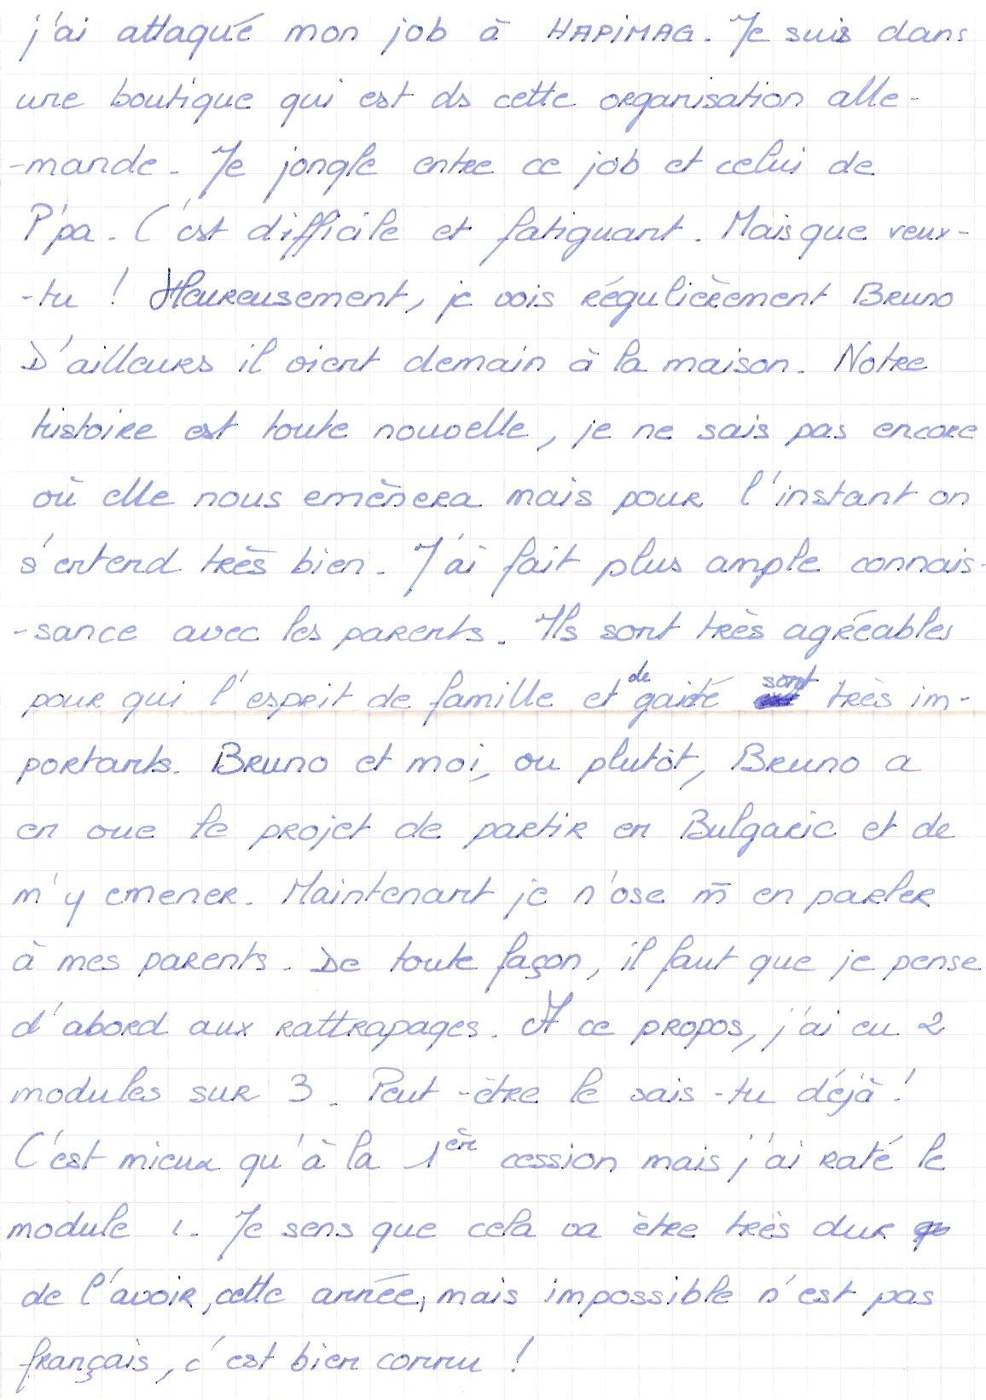 j'ai attaqué mon job à HAPIMAG. Je suis dans
une boutique qui est ds cette organisation alle-
-mande. Je jongle entre ce job et celui de
P'pa. C'est difficile et fatiguant. Mais que veux-
-tu ! Heureusement, je vois régulièrement Bruno
D'ailleurs il vient demain à la maison. Notre
histoire est toute nouvelle, je ne sais pas encore
où elle nous emènera mais pour l'instant on
s'entend très bien. J'ai fait plus ample connais-
-sance avec les parents. Ils sont très agréables
pour qui l'esprit de famille et de gaité sont très im-
portants. Bruno et moi, ou plutôt, Bruno a
en vue le projet de partir en Bulgarie et de
m'y emener. Maintenant je n'ose m̄ en parler
à mes parents. De toute façon, il faut que je pense
d'abord aux rattrapages. A ce propos, j'ai eu 2
modules sur 3. Peut-être le sais-tu déjà !
C'est mieux qu'à la 1ère cession mais j'ai raté le
module 1. Je sens que cela va être très dur
de l'avoir, cette année, mais impossible n'est pas
français, c'est bien connu !